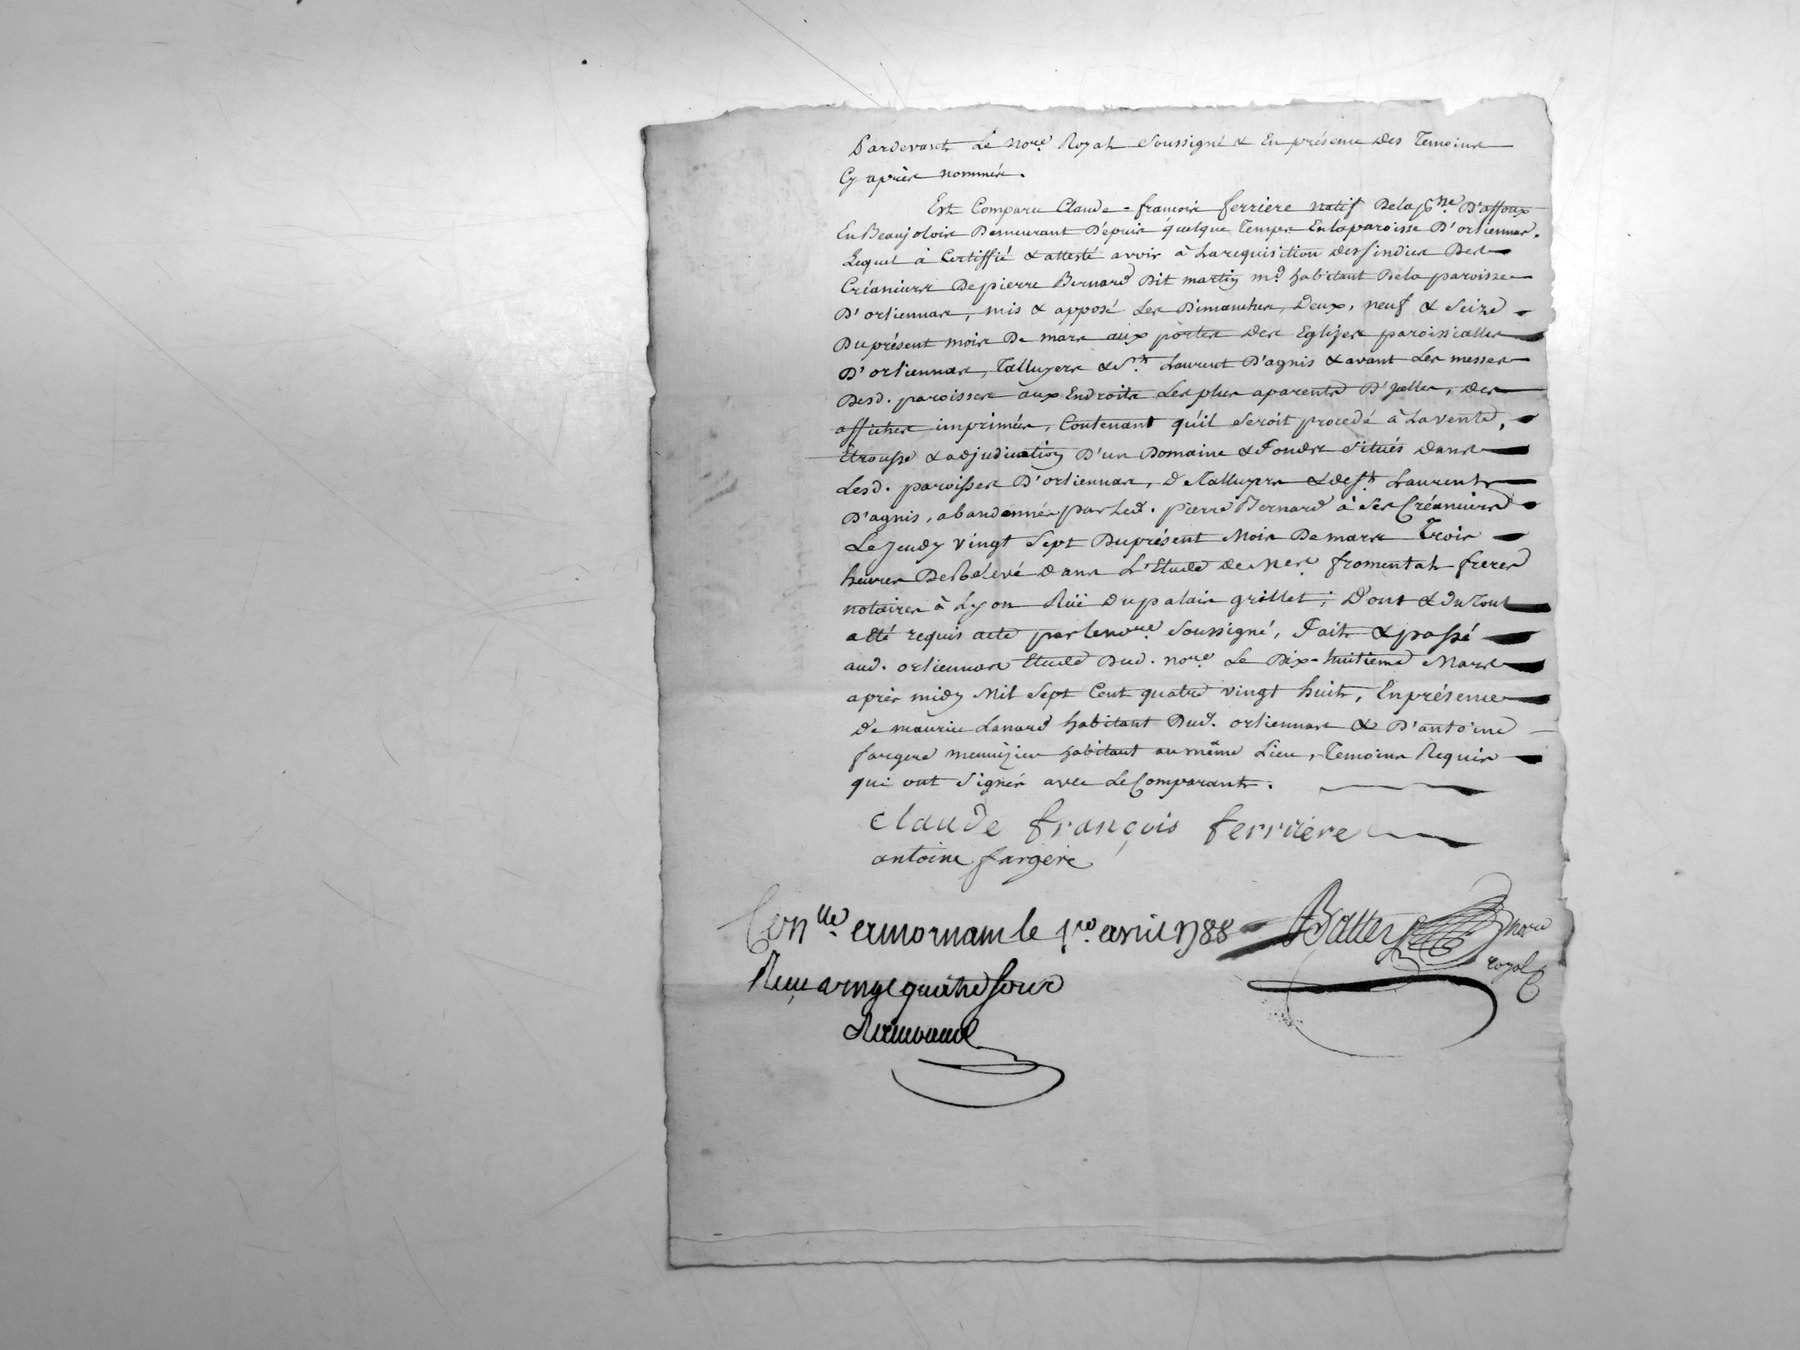 Pardevant Le no.re Royal Soussigné & En présence Des Temoins
Cy après nommés.
Est Comparu Claude-françois ferriere natif De la p.sse D'affoux
En Beaujolois Demeurant Depuis quelque Temps En la paroisse D'orliennas.
Lequel à Certiffié & attesté avoir à La requisition des sindics Des
Créanciers De pierre Bernard Dit martin m.d habitant De la paroisse
D'orliennas, mis & apposé Les Dimanches, Deux, neuf & Seize
Du présent mois De mars aux portes Des Eglizes paroissialles
D'orliennas, Talluyers & S.t Laurent D'agnis & avant Les messes
Desd. paroisses aux Endroits Les plus aparents D'jcelles, Des
affiches imprimées, Contenant qu'il Seroit procedé à La vente,
Etrousse & adjudication D'un Domaine & Fonds Situés dans
Lesd. paroisses D'orliennas, De Talluyers & de S.t Laurent
D'agnis, abandonnés par Led. pierre Bernard à Ses Créanciers
Le Jeudy vingt Sept Du présent Mois De mars Trois
heures De Relevé dans L'Etude de Mes. fromental freres
notaires à Lyon Rüe du palais grillet; D'ont & du Tout
a Eté requis acte par le no.re Soussigné, Fait & passé
aud. orliennas Etude Dud. no.re Le Dix-huitieme Mars
après midy Mil Sept Cent quatre vingt huit, En présence
de maurice Lanard habitant Dud. orliennas & D'antoine
fargere menuizier habitant au même Lieu, Temoins Requis
qui ont Signés avec Le Comparant.
claude françois ferriere
antoine fargere
Con.lle a mornant le 1.er avril 1788
Reçu vingt quatre sous
no.re
royal